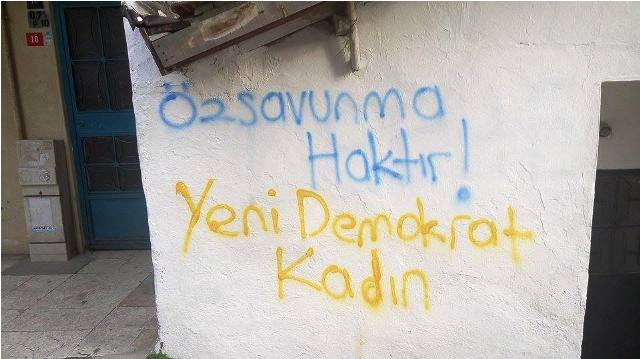 18
Özsavunma
Haktır!
Yeni Demokrat
Kadın